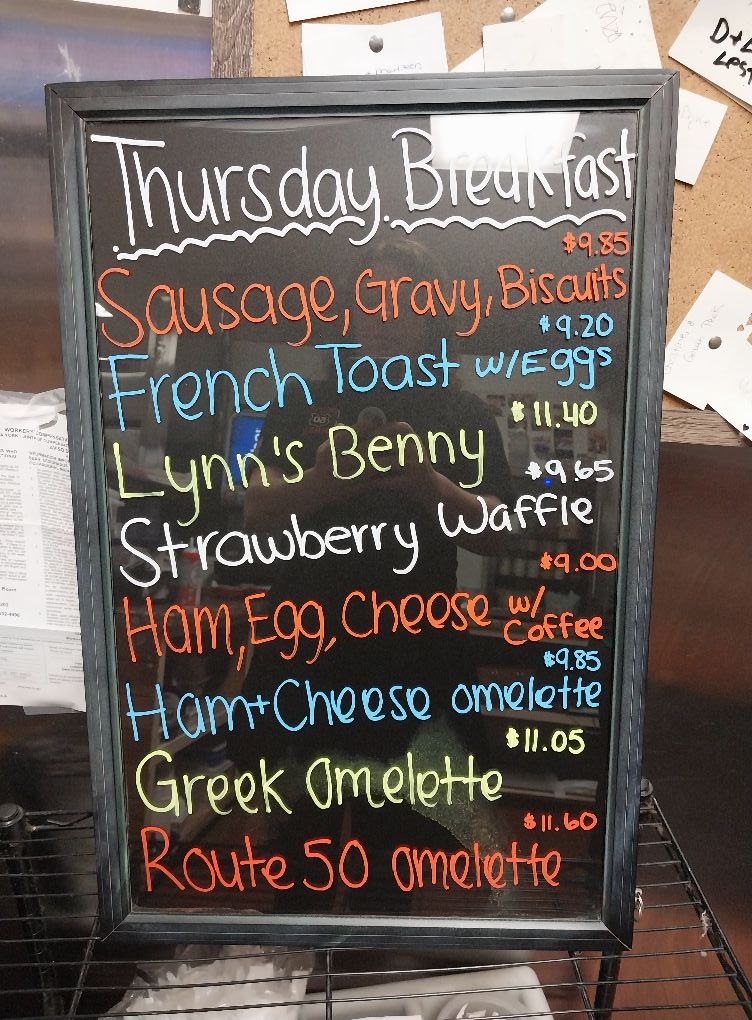 D+L
Thursday Breakfast
$9.85
Sausage, Gravy, Biscuits
$9.20
French Toast w/Eggs
$11.40
Lynn's Benny
$9.65
Strawberry Waffle
$9.00
Ham, Egg, Cheese w/ Coffee
$9.85
Ham+Cheese omelette
$11.05
Greek omelette
$11.60
Route 50 omelette